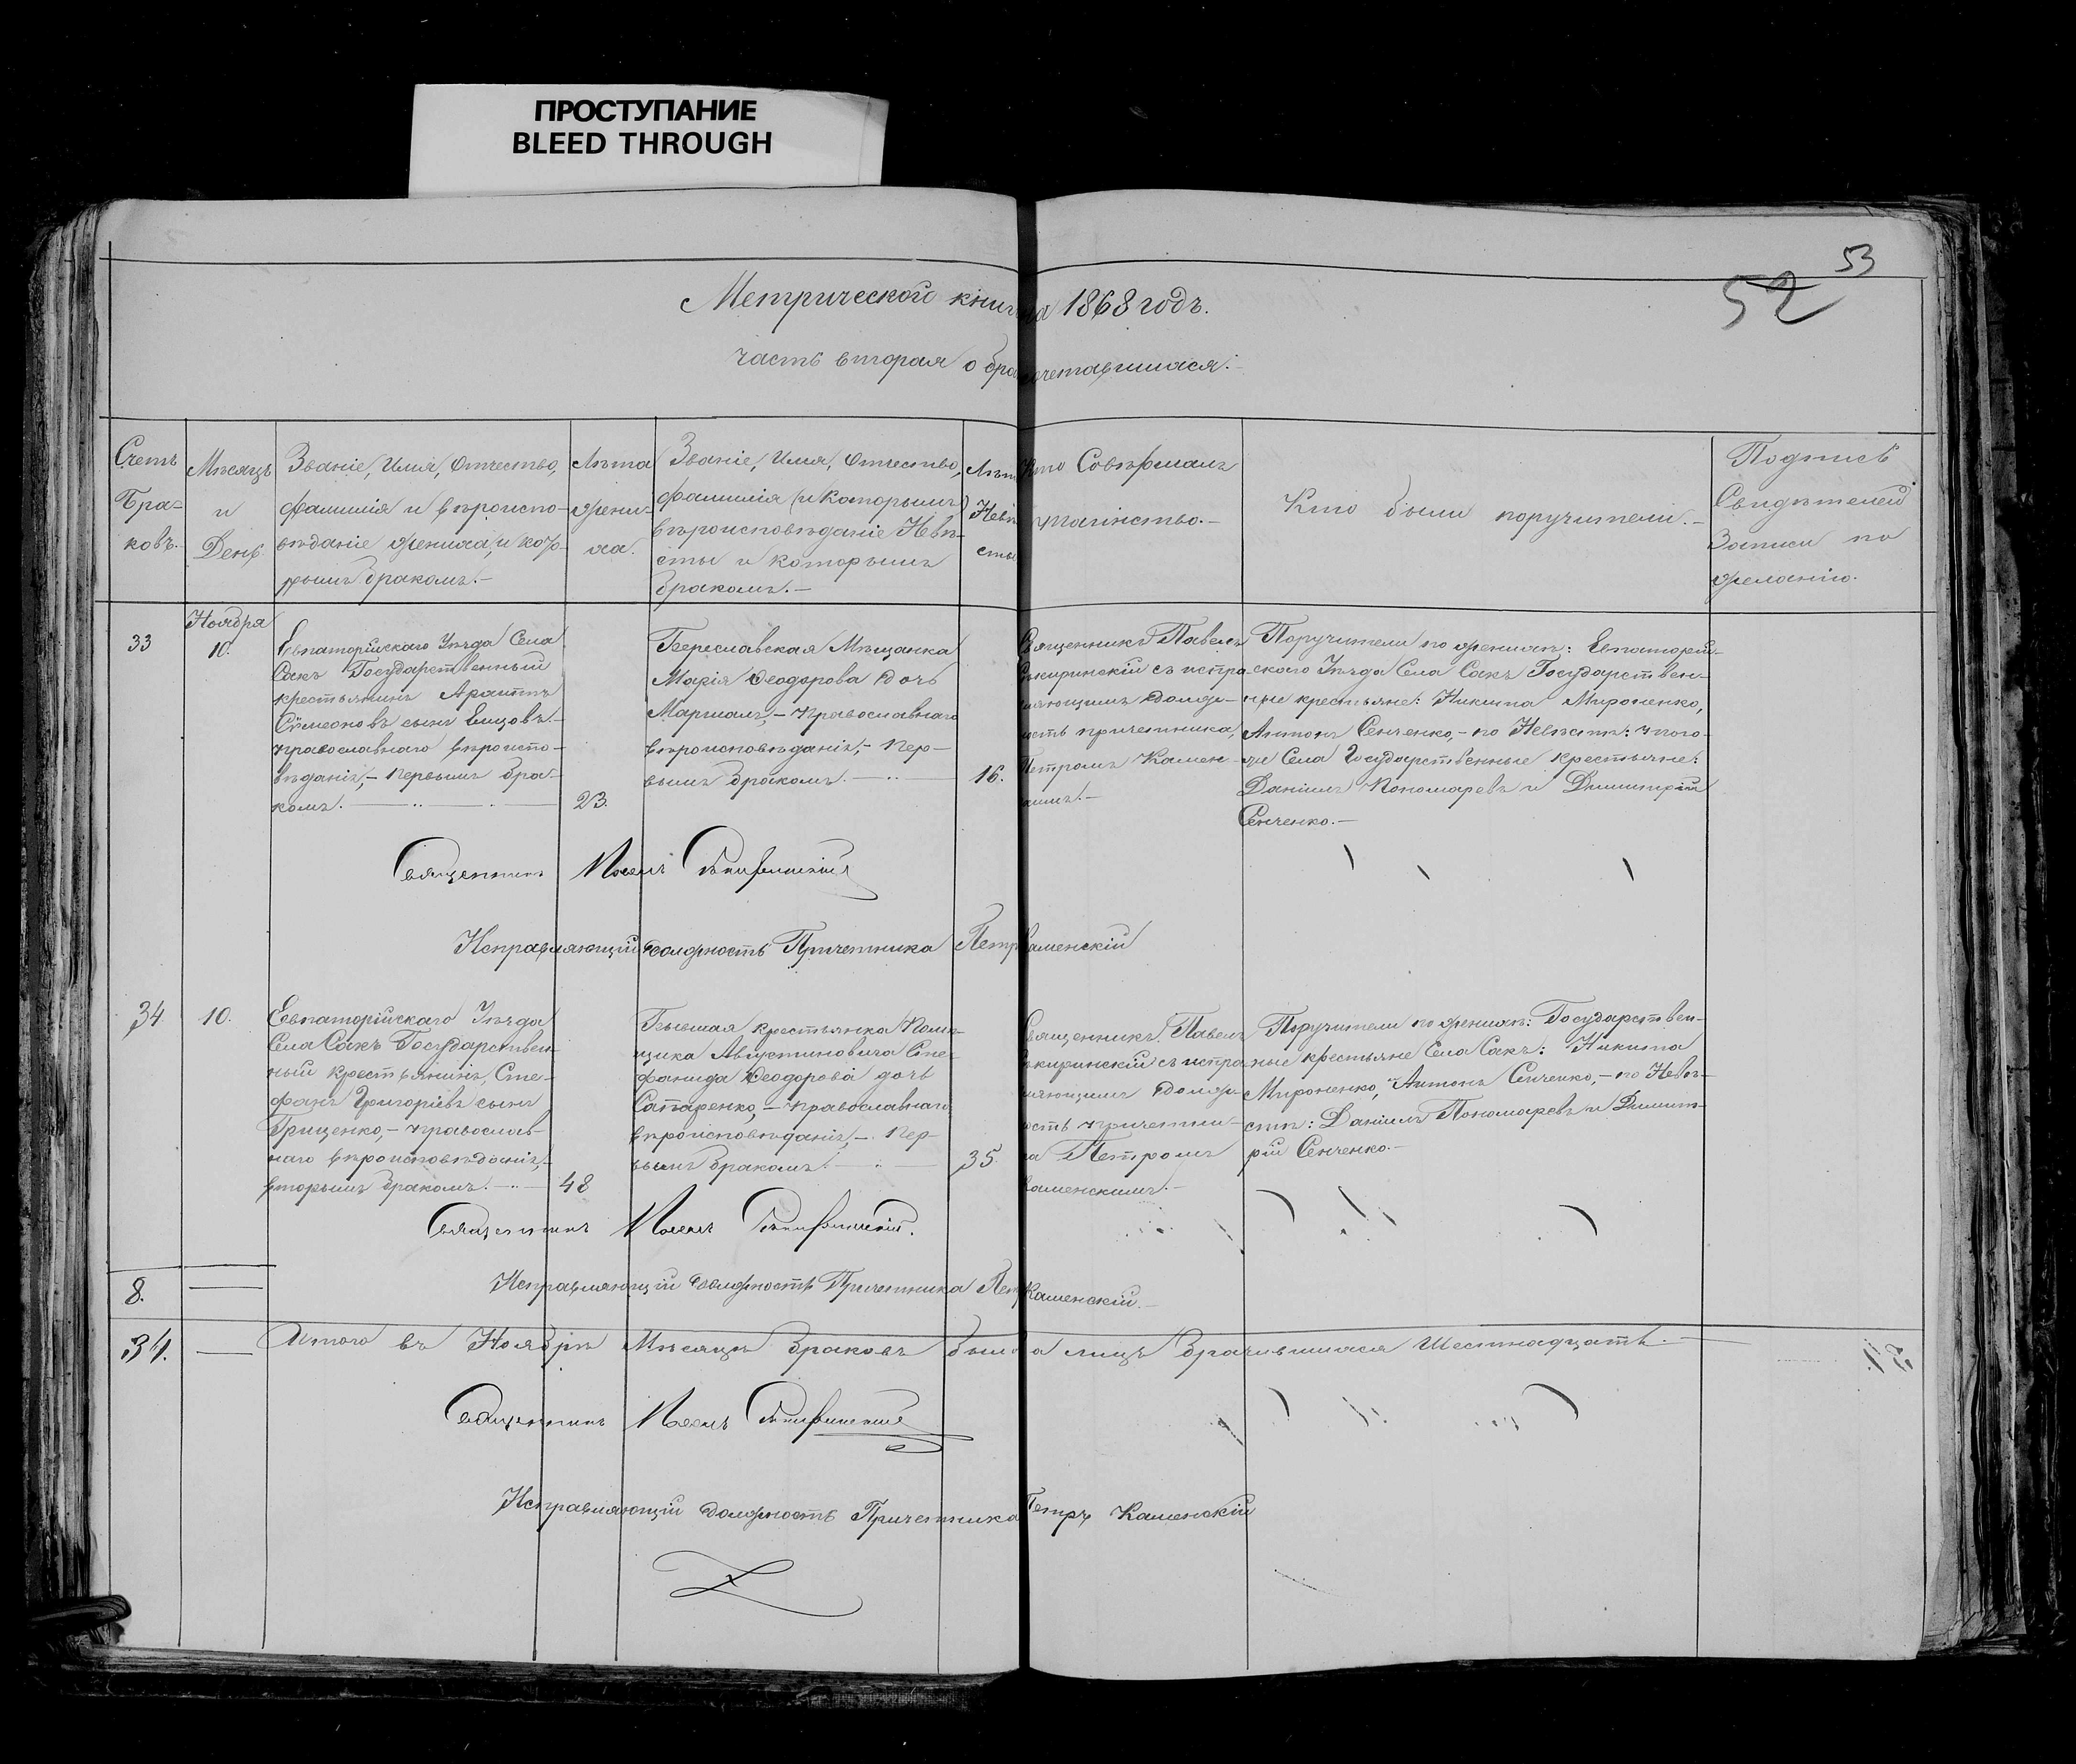 ПРОСТУПАНИЕ
BLEED THROUGH
53
52
Метрической книг на 1868 годъ.
часть вторая о бра сочетавшихся:
Счетъ Бра- ковъ.
Мѣсяцъ и День.
Званіе, Имя, Отчество,
фамилія и вѣроиспо-
вѣданіе жениха, и кот-
рымъ бракомъ.
Лѣта жени- ха.
Званіе, Имя, Отчество,
фамилія (и которымъ)
вѣроисповѣданіе Невѣ-
сты и которымъ
бракомъ.
Лѣт Невѣ сты
Кто Совершалъ
таинство.
Кто были поручители.
Подпись
Свидѣтелей
Записи по
желанію.
33
Ноября
10.
Евпаторійскаго Уѣзда Села
Сакъ Государственный
крестьянинъ
Сѵмеоновъ сынъ
православнаго вѣроиспо-
вѣданія, – первымъ бра-
комъ.
23.
Береславская Мѣщанка
Марія Ѳеодорова дочь
православнаго
вѣроисповѣданія, – пер-
вымъ бракомъ.
16.
Священникъ Павелъ
съ испра-
вляющимъ долж-
ость причетника,
Петромъ Камен-
Поручители по женихѣ: Евпаторій-
скаго Уѣзда Села Сакъ Государствен-
ные крестьяне: Никита Мироненко,
Антонъ Сенченко, – по Невѣстѣ: того-
же Села Государственные крестьяне:
Даніилъ Пономаревъ и Димитрій
Сенченко.
Священникъ Павелъ
Исправляющій должность Причетника Петр Каменскій
34
10.
Евпаторійскаго Уѣзда
Села Сакъ Государствен-
ный крестьянинъ, Сте-
фанъ Григоріевъ сынъ
Грищенко, – православ-
наго вѣроисповѣданія,
вторымъ бракомъ.
48
Бывшая крестьянка Помѣ-
щика Августиновича Сте-
фанида Ѳеодорова дочь
православнаго
вѣроисповѣданія, – пер-
вымъ бракомъ.
35
Священникъ Павелъ
съ испра-
вляющимъ долж-
ость причетни-
ка Петромъ
Каменскимъ.
Поручители по женихѣ: Государствен-
ные крестьяне Села Сакъ: Никита
Мироненко, Антонъ Сенченко, – по Невѣ-
стѣ: Даніилъ Пономаревъ и Димит-
рій Сенченко.
Священникъ Павелъ
Исправляющій должность Причетника Пет Каменскій.
8.
34.
Итого въ Ноябрѣ Мѣсяцѣ браковъ было а лицъ брачившихся Шестнадцать.
Священникъ Павелъ
Исправляющій должность Причетника Петръ Каменскій